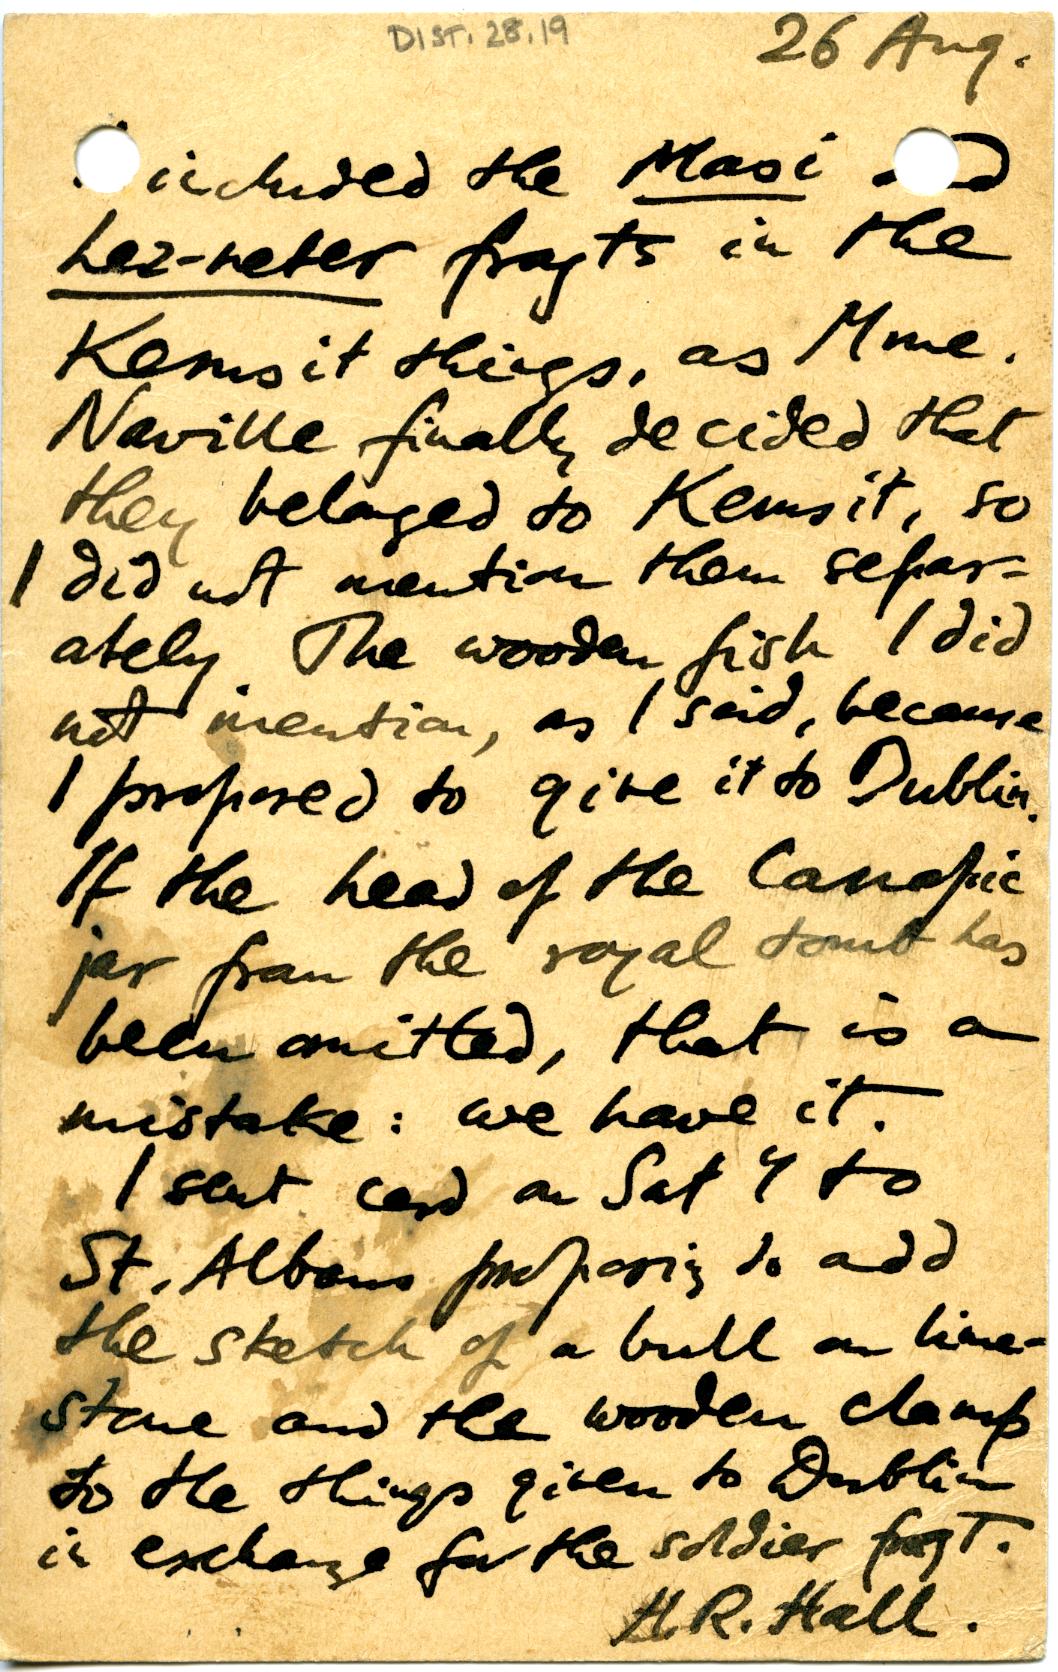 DIST. 28.19
26 Aug.
included the Masi and
hez-neter fragts in the
Kemsit things, as Mme.
Naville finally decided that
they belonged to Kemsit, so
I did not mention them separ-
ately. The wooden fish I did
not mention, as I said, because
I proposed to give it to Dublin.
If the head of the Canopic
jar from the royal tomb has
been omitted, that is a
mistake: we have it.
I sent card on Sat y to
St. Albans proposing to add
the sketch of a bull on lime-
stone and the wooden clamp
to the things given to Dublin
in exchange for the soldier fragt.
H.R. Hall.